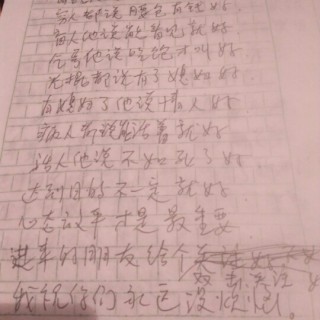 穷人都说腰包有钱好
盲人他说能看见就好
乞丐他说吃饱才叫好
光棍都说有了媳妇好
有媳妇了他说情人好
病人都说能活着就好
活人他说不如死了好
达到目的不一定就好
心态放平才是最重要
进来的朋友给个
双击关注。
我祝你们永远没烦恼。